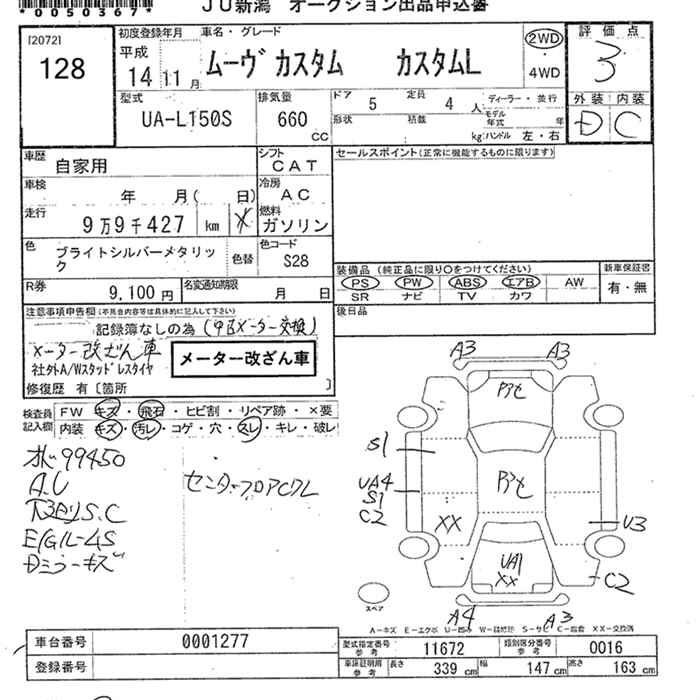 *0050367*
JU新潟 オークション出品申込書
[2072]
128
初度登録年月
平成
14 11 月
車名・グレード
ムーヴ カスタム カスタムL
2WD
・
4WD
評価点
3
外装 内装
D C
型式
UA-L150S
排気量
660
CC
ドア 5 定員 4 人
形状 積載 kg
ディーラー・並行
モデル年式 年
ハンドル 左・右
車歴
自家用
シフト
CAT
セールスポイント(正常に機能するものに限ります)
車検
年 月( 日)
冷房
AC
走行
9万9千427 km
燃料
ガソリン
色
ブライトシルバーメタリック
色替
色コード
S28
装備品 (純正品に限り○をつけてください)
PS PW ABS エアB AW
SR ナビ TV カワ
新車保証書
有・無
R券
9,100 円
名変通知期限
月 日
後日品
注意事項申告欄(不具合内容等は具体的に記入して下さい)
記録簿なしの為(中古メーター交換)
メーター改ざん車
メーター改ざん車
社外A/Wスタッドレスタイヤ
修復歴 有 [箇所 ]
検査員記入欄
FW キズ・飛石・ヒビ割・リペア跡・×要
内装 キズ・汚レ・コゲ・穴・スレ・キレ・破レ
99450
A.U
S.C
E/G
Dミラーキズ
センターフロア
A3 A3
S1
UA4
S1
C2
XX
U3
UA1
XX
C2
A4 A3
スペア
A-キズ E-エクボ U-凹み W-補修跡 S-サビ C-腐食 XX-交換済
車台番号 0001277
登録番号
型式指定番号 参考 11672
類別区分番号 参考 0016
車庫証明用 参考 長さ 339 cm 幅 147 cm 高さ 163 cm